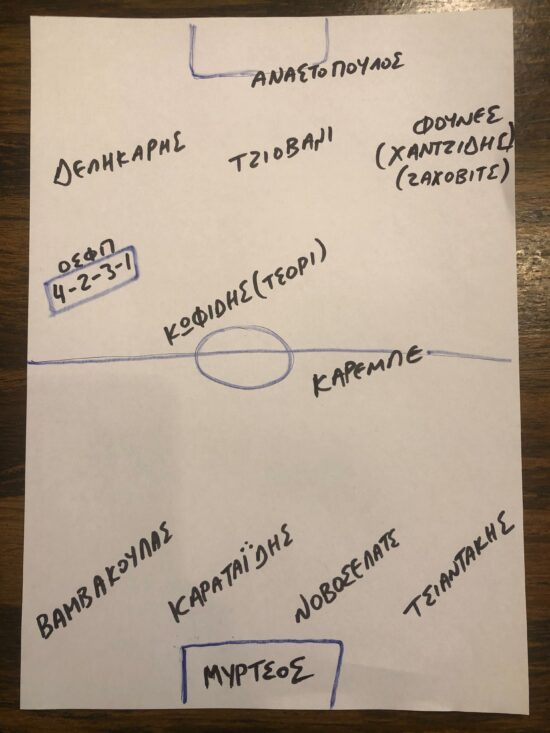 ΑΝΑΣΤΟΠΟΥΛΟΣ
ΔΕΛΗΚΑΡΗΣ
ΤΖΙΟΒΑΝΙ
ΦΟΥΝΕΣ
(ΧΑΝΤΖΙΔΗΣ)
(ΖΑΧΟΒΙΤΣ)
ΟΣΦΠ
4-2-3-1
ΚΩΦΙΔΗΣ(ΤΣΟΡΙ)
ΚΑΡΕΜΠΕ
ΒΑΜΒΑΚΟΥΛΑΣ
ΚΑΡΑΤΑΪΔΗΣ
ΝΟΒΟΣΕΛΑΤΣ
ΤΣΙΑΝΤΑΚΗΣ
ΜΥΡΤΣΟΣ